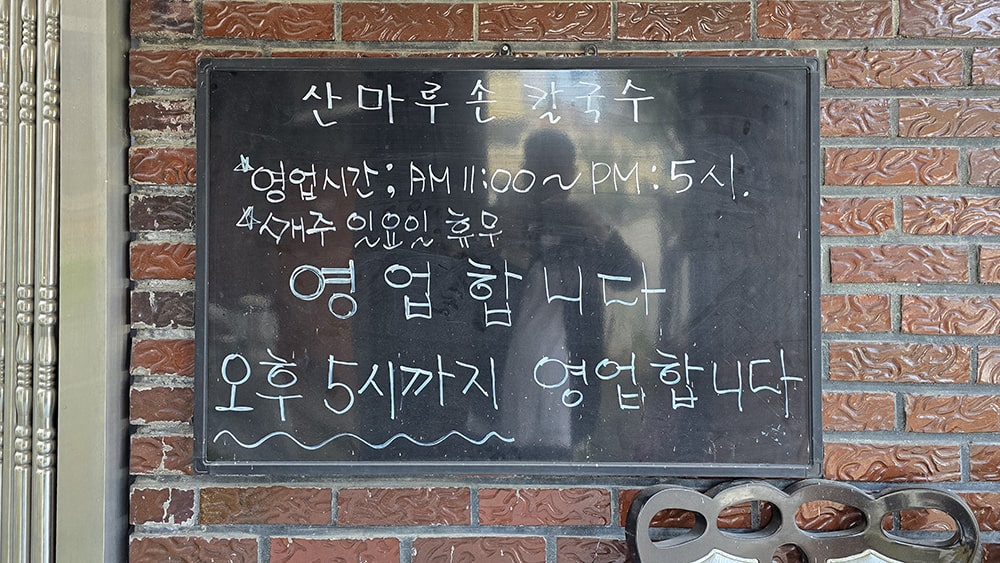 산마루손 칼국수
*영업시간; AM 11:00~PM:5시.
*매주 일요일 휴무
영업합니다
오후 5시까지 영업합니다